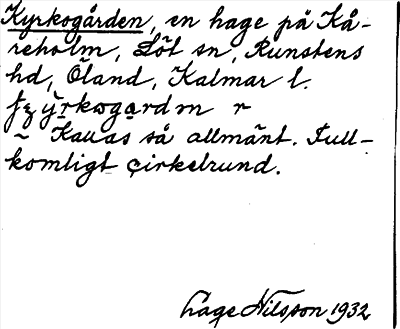 Kyrkogården, en hage på Kå-
reholm, Löt sn, Runstens
hd, Öland, Kalmar l.
r
~ Kallas så allmänt. Full-
komligt cirkelrund.
Lage Nilsson 1932